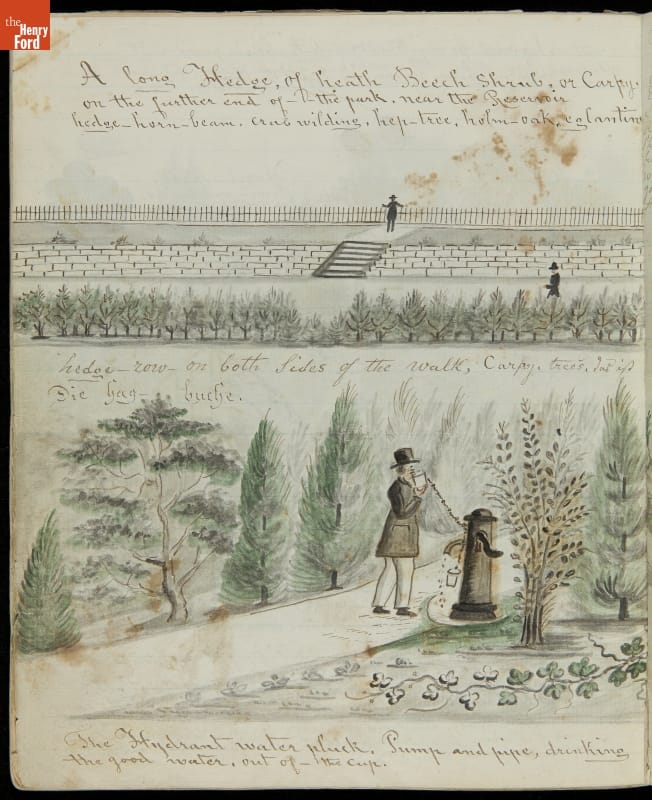 the
Henry
Ford
A long Hedge, of heath Beech Shrub, or Carpy.
on the further end of - the park. near the Reservoir
hedge-horn-beam. crab wilding, hep-tree, holm-oak, eglantin
hedge-row- on both sides of the walk, Carpy. trees, das ist
Die hag- buche.
The Hydrant water pluck. Pump and pipe, drinking
the good water, out of - the cup.